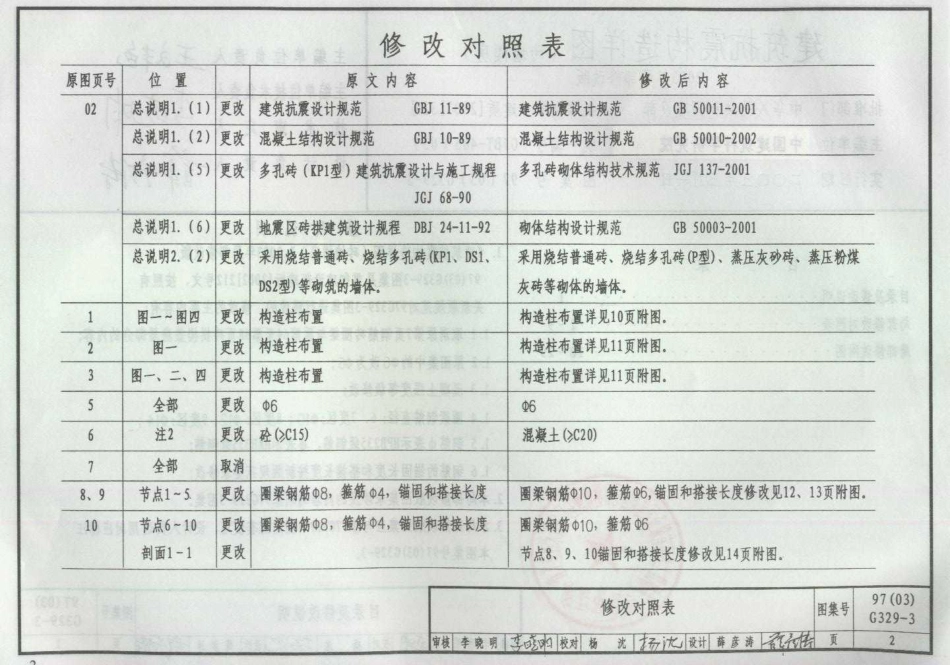 修改对照表
原图页号 位置 原文内容 修改后内容
02 总说明1.(1) 更改 建筑抗震设计规范 GBJ 11-89 建筑抗震设计规范 GB 50011-2001
总说明1.(2) 更改 混凝土结构设计规范 GBJ 10-89 混凝土结构设计规范 GB 50010-2002
总说明1.(5) 更改 多孔砖(KP1型)建筑抗震设计与施工规程 多孔砖砌体结构技术规范 JGJ 137-2001
JGJ 68-90
总说明1.(6) 更改 地震区砖拱建筑设计规程 DBJ 24-11-92 砌体结构设计规范 GB 50003-2001
总说明2.(2) 更改 采用烧结普通砖、烧结多孔砖(KP1、DS1、 采用烧结普通砖、烧结多孔砖(P型)、蒸压灰砂砖、蒸压粉煤
DS2型)等砌筑的墙体。 灰砖等砌体的墙体。
1 图一~图四 更改 构造柱布置 构造柱布置详见10页附图。
2 图一 更改 构造柱布置 构造柱布置详见11页附图。
3 图一、二、四 更改 构造柱布置 构造柱布置详见11页附图。
5 全部 更改 Φ6 Φ6
6 注2 更改 砼(≥C15) 混凝土(≥C20)
7 全部 取消
8、9 节点1~5 更改 圈梁钢筋Φ8，箍筋Φ4，锚固和搭接长度 圈梁钢筋Φ10，箍筋Φ6,锚固和搭接长度修改见12、13页附图。
10 节点6~10 更改 圈梁钢筋Φ8，箍筋Φ4，锚固和搭接长度 圈梁钢筋Φ10，箍筋Φ6
剖面1-1 更改 节点8、9、10锚固和搭接长度修改见14页附图。
修改对照表 图集号 97(03)G329-3
审核 李晓明 校对 杨沈 杨沈 设计 薛彦涛 页 2